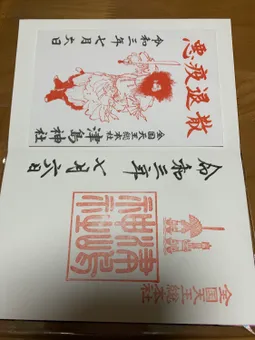 悪疫退散
令和三年七月六日
全国天王総本社
津島神社
令和三年七月六日
津嶋神社
全国天王総本社